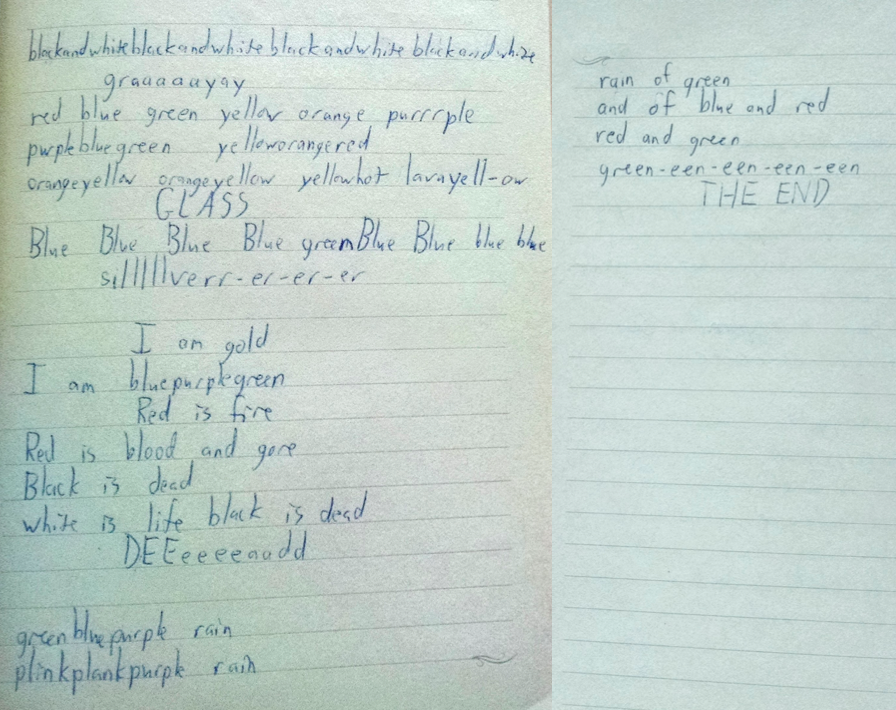 blackandwhiteblackandwhiteblackandwhiteblackandwhite
graaaaayay
red blue green yellow orange purrrple
purplebluegreen yelloworangered
orangeyellow orangeyellow yellowhot lavayell-ow
GLASS
Blue Blue Blue Blue greenBlue Blue blue blue
silllllverr-er-er-er
I am gold
I am bluepurplegreen
Red is fire
Red is blood and gore
Black is dead
white is life black is dead
DEEeeeeaadd
greenbluepurple rain
plinkplankpurple rain
rain of green
and of blue and red
red and green
green-een-een-een-een
THE END